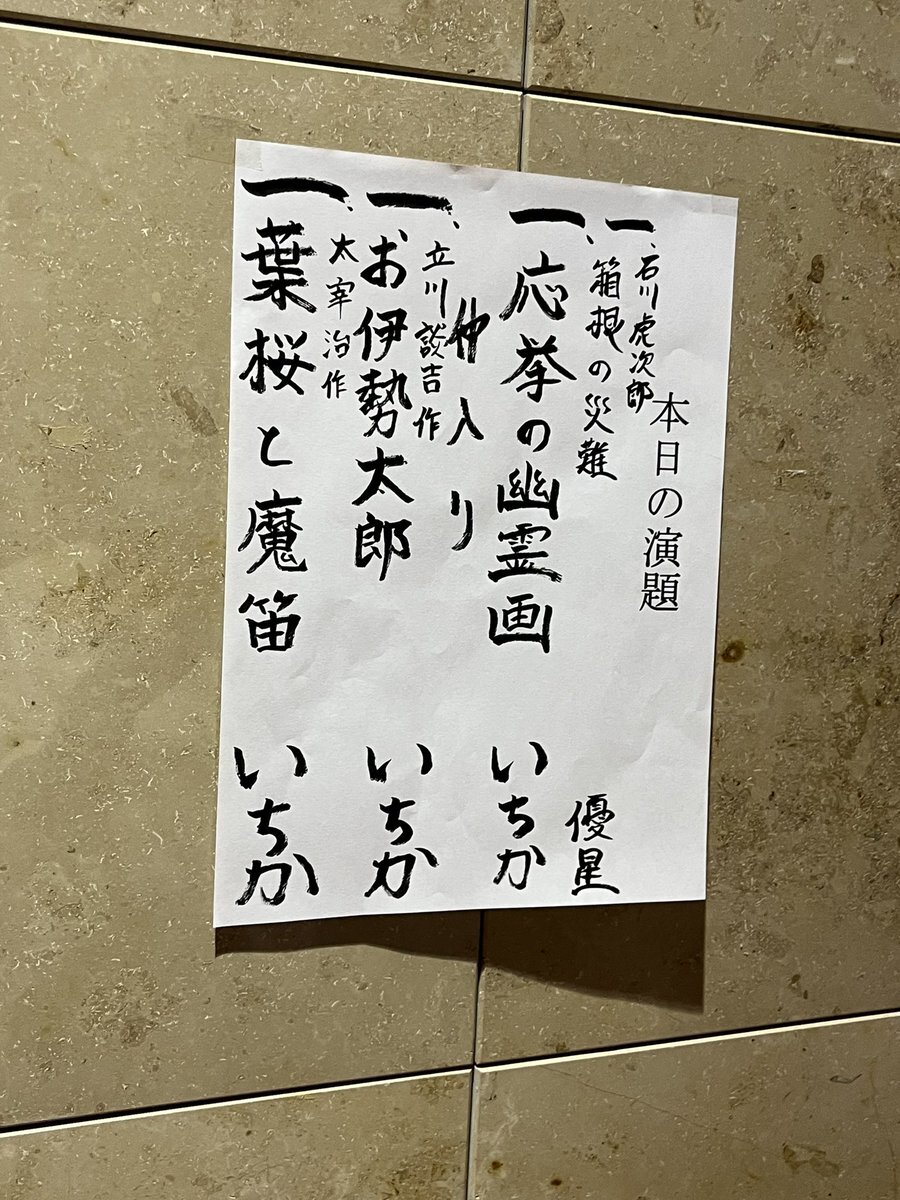 本日の演題
一、石川虎次郎
箱根の災難 優星
一、応挙の幽霊画 いちか
仲入り
立川談吉作
一、お伊勢太郎 いちか
太宰治作
一、葉桜と魔笛 いちか